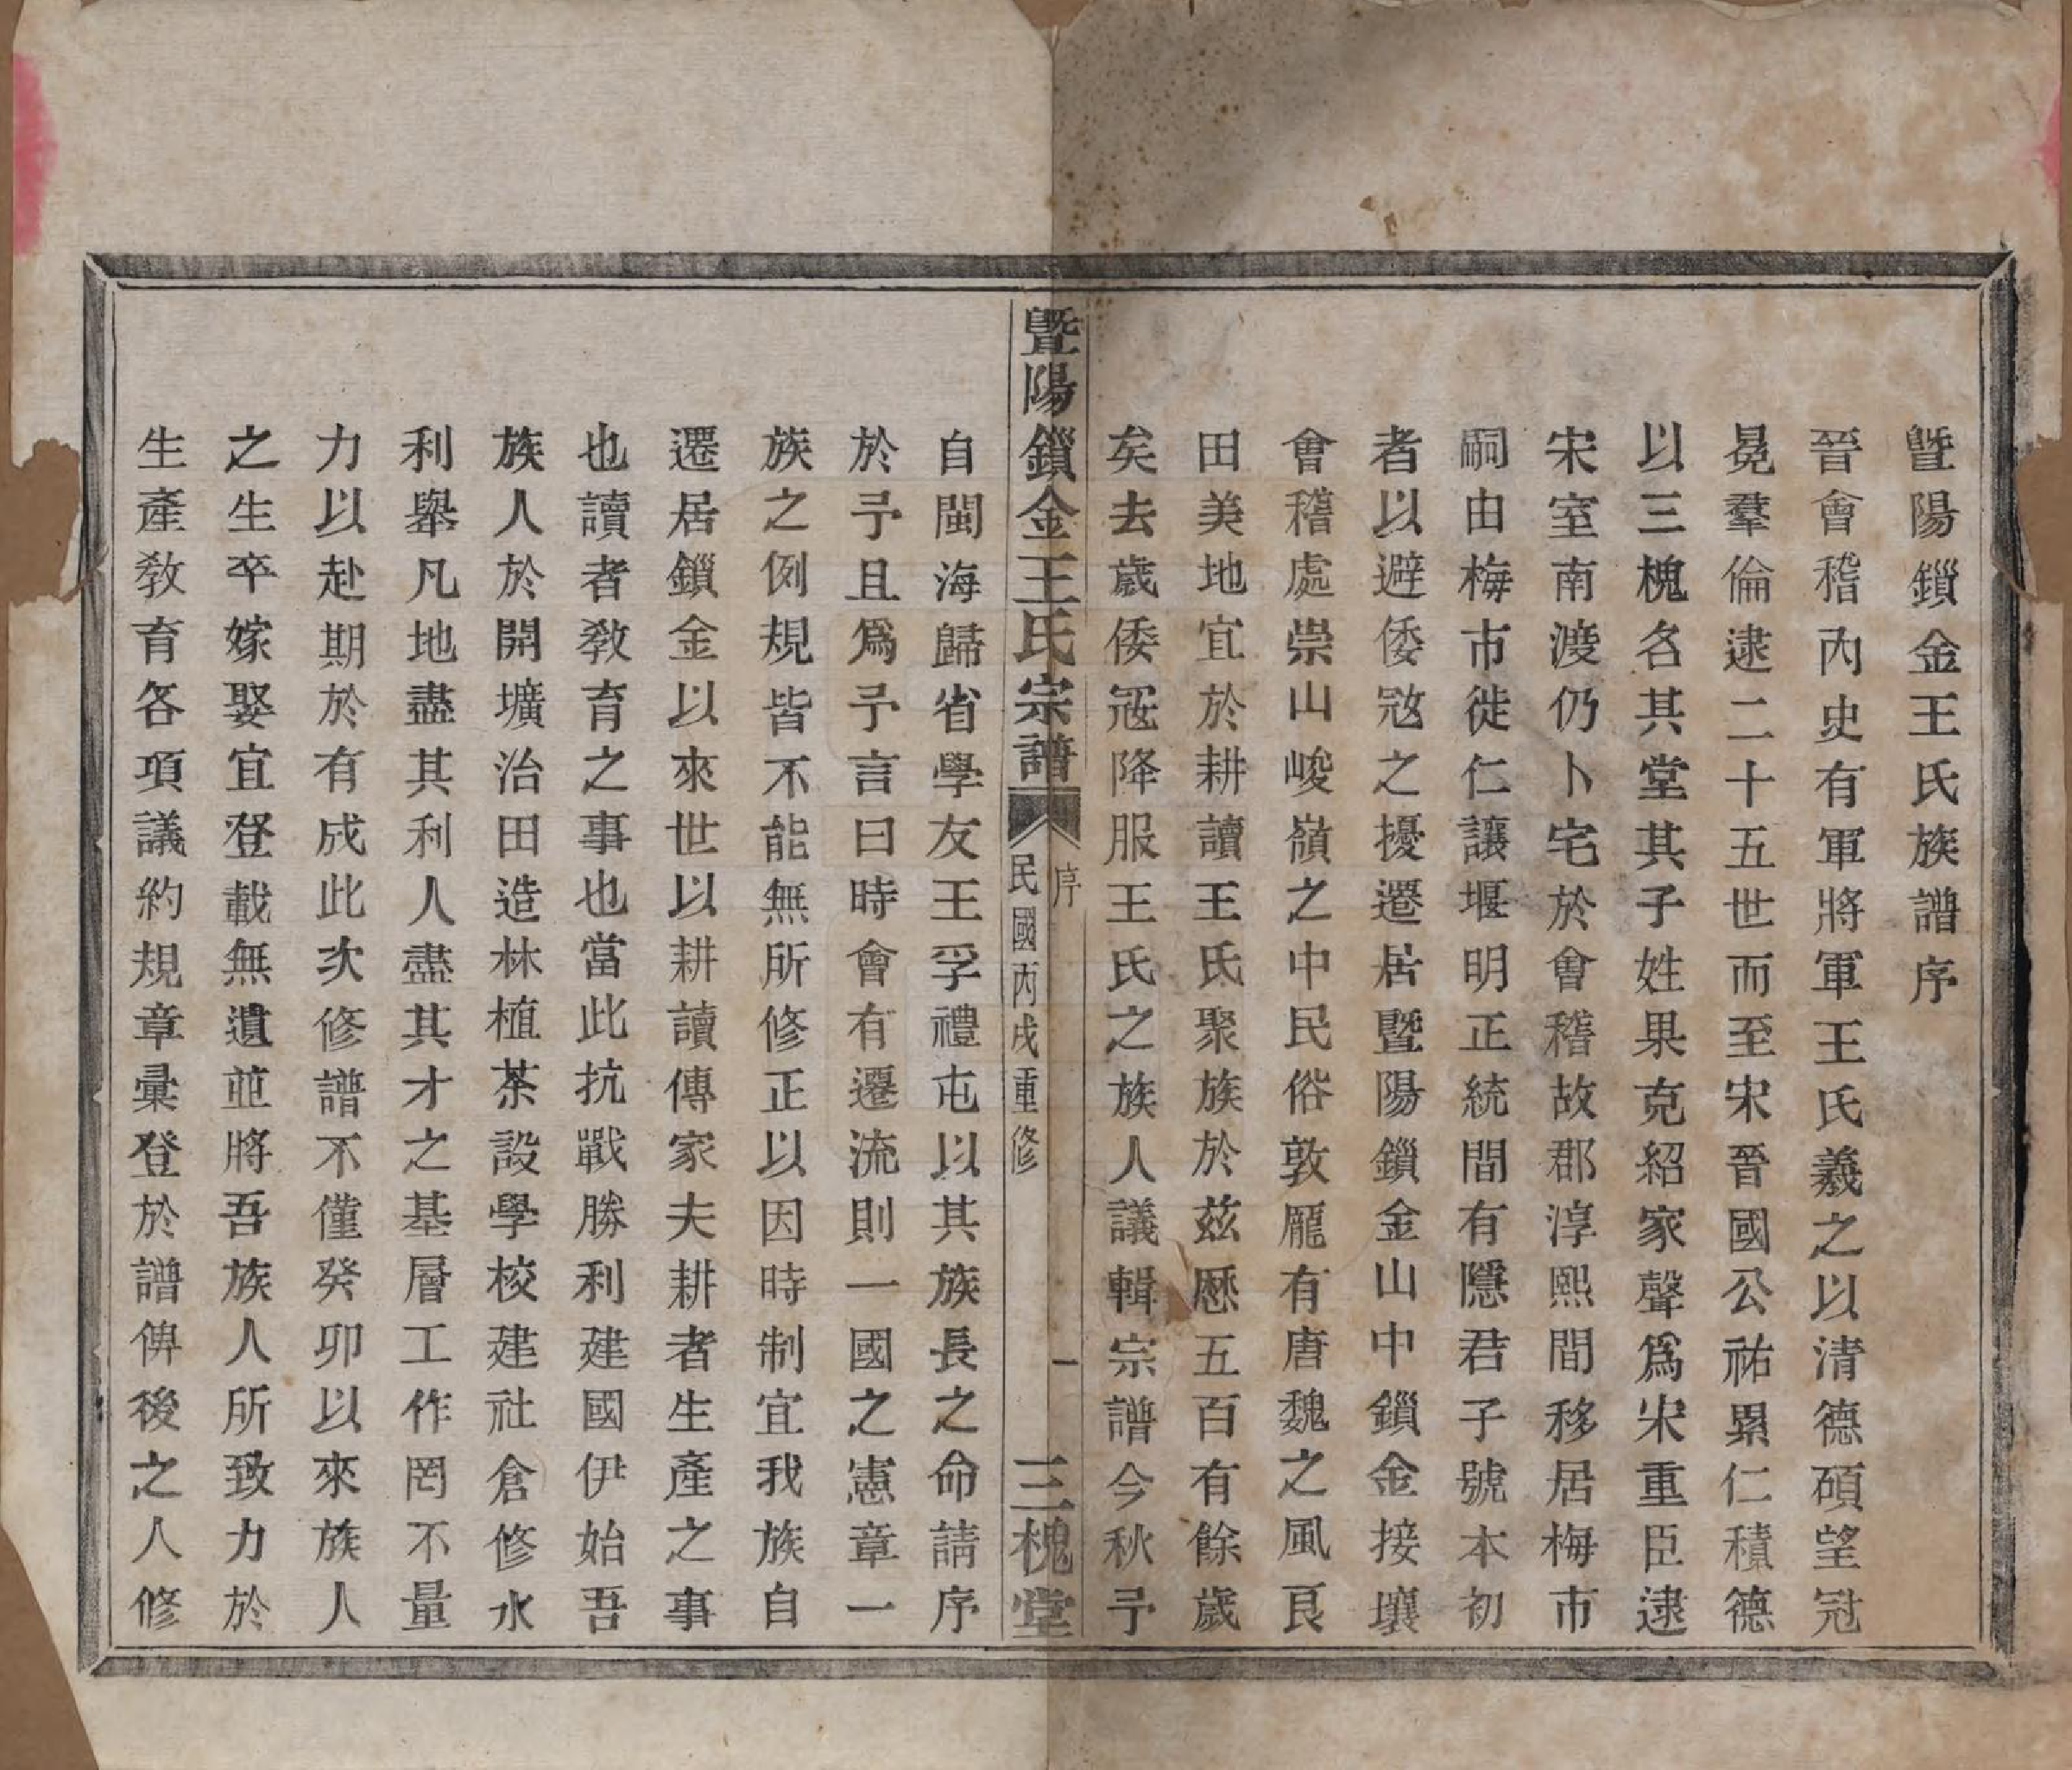 暨陽鎖金王氏族譜序
晉會稽內史有軍將軍王氏羲之以清德碩望冠
冕羣倫逮二十五世而至宋晉國公祐累仁積德
以三槐名其堂其子姓果克紹家聲爲宋重臣逮
宋室南渡仍卜宅於會稽故郡淳熙間移居梅市
嗣由梅市徙仁讓堰明正統間有隱君子號本初
者以避倭寇之擾遷居暨陽鎖金山中鎖金接壤
會稽處崇山峻嶺之中民俗敦龐有唐魏之風良
田美地宜於耕讀王氏聚族於茲歷五百有餘歲
矣去歲倭寇降服王氏之族人議輯宗譜今秋予
暨陽鎖金王氏宗譜
序
一
民國丙戌重修
三槐堂
自閩海歸省學友王孚禮屯以其族長之命請序
於予且爲予言曰時會有遷流則一國之憲章一
族之例規皆不能無所修正以因時制宜我族自
遷居鎖金以來世以耕讀傳家夫耕者生產之事
也讀者敎育之事也當此抗戰勝利建國伊始吾
族人於開壙治田造林植茶設學校建社倉修水
利舉凡地盡其利人盡其才之基層工作罔不量
力以赴期於有成此次修譜不僅癸卯以來族人
之生卒嫁娶宜登載無遺並將吾族人所致力於
生產敎育各項議約規章彙登於譜俾後之人修